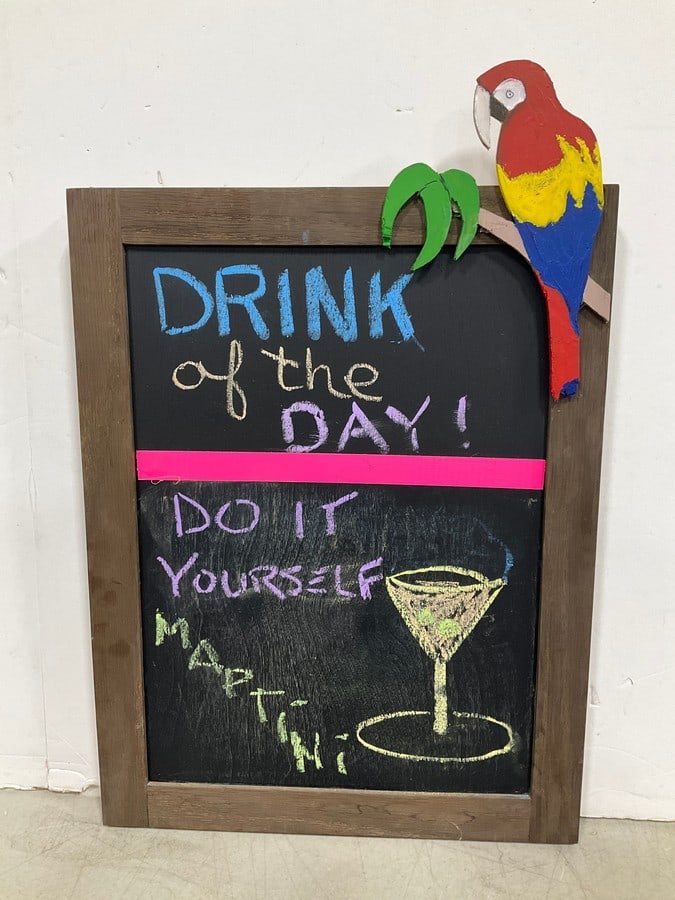 DRINK
of the
DAY!
DO IT
YOURSELF
MARTiNi